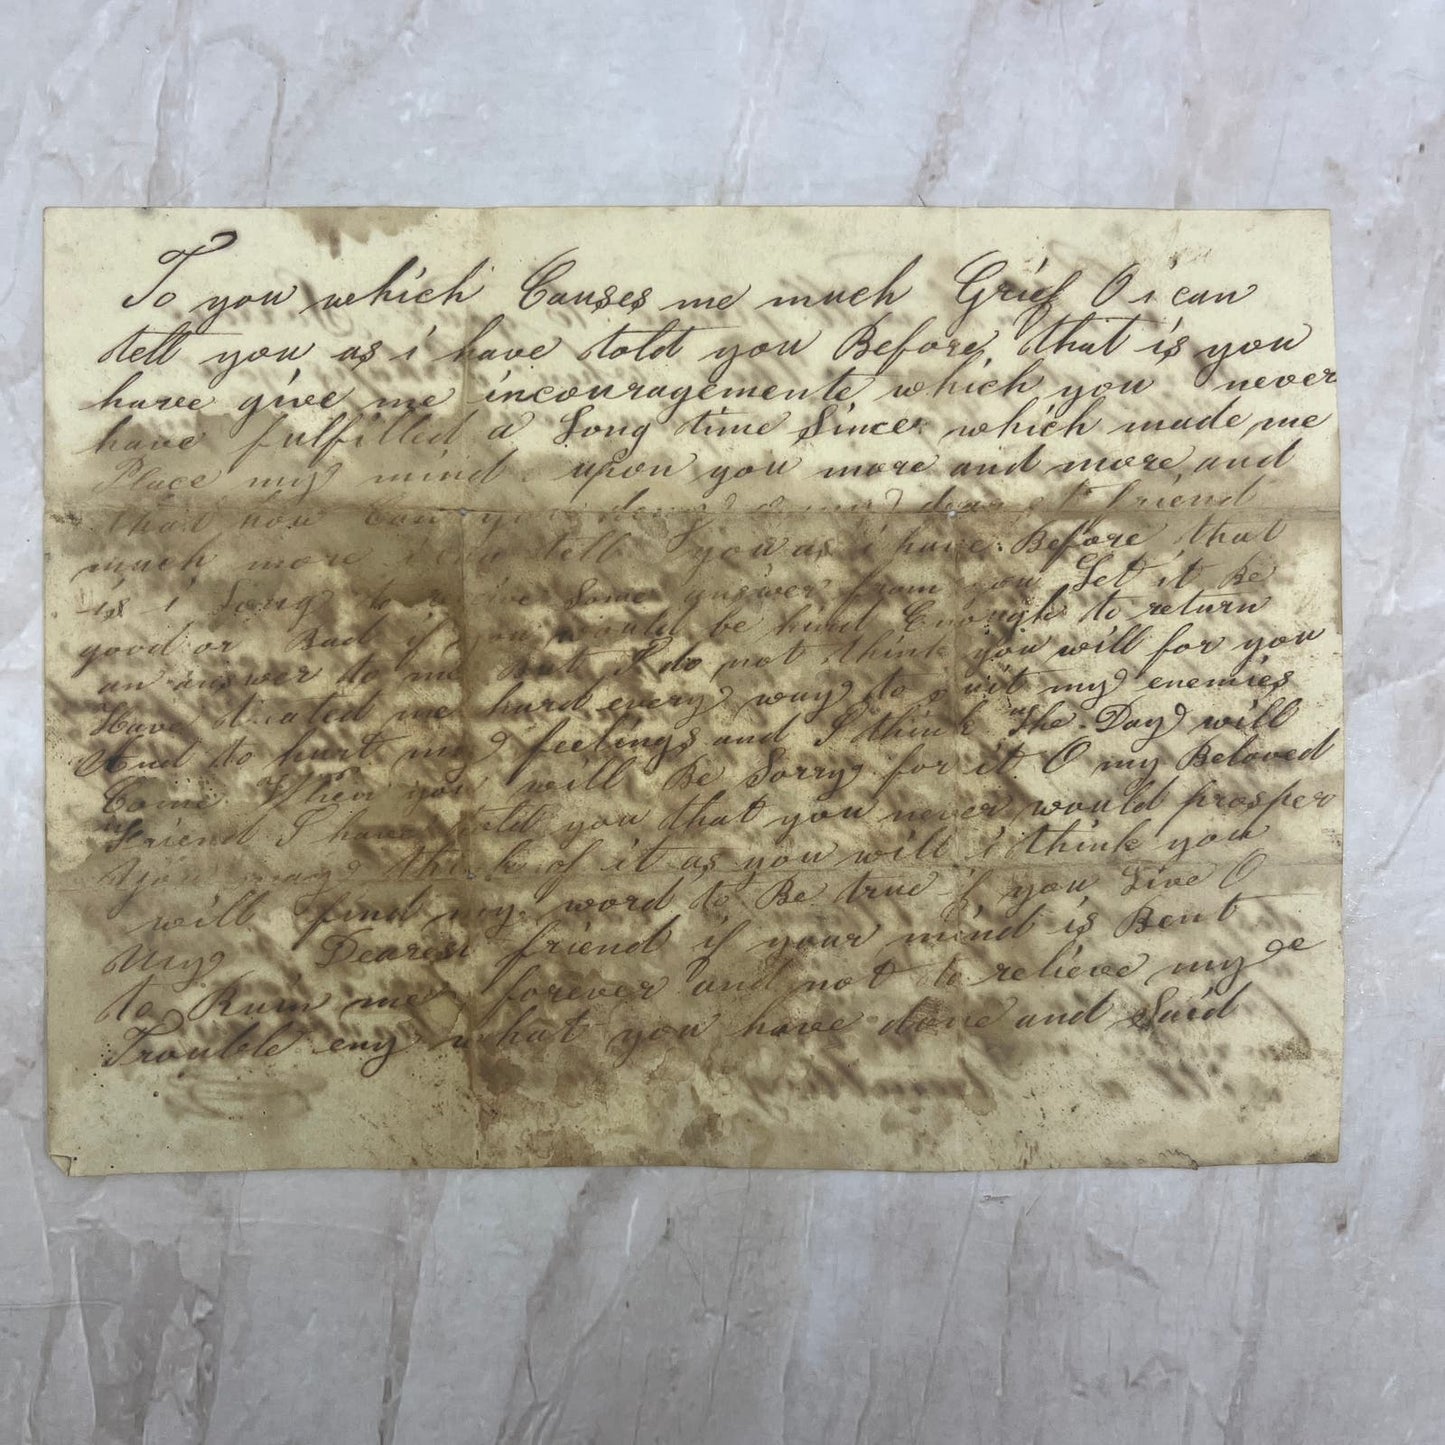 To you which Causes me much Grief O i can
tell you as i have told you Before, that is you
have give me incouragemente which you never
have fulfilled a Long time Since which made me
Place my mind upon you more and more and
that how Can you dearest friend
much more tell you as i have Before that
is i Long to receive Some answer from you Let it Be
good or Bad if you would be kind Enough to return
an answer to me But I do not think you will for you
Have treated me hard every way to suit my enemies
And to hurt my feelings and I think the Day will
Come When you will Be Sorry for it O my Beloved
friend I have told you that you never would prosper
you may think of it as you will i think you
will find my word to Be true if you Live O
My Dearest friend if your mind is Bent
to Ruin me forever and not to relieve my
Trouble eny what you have done and Said